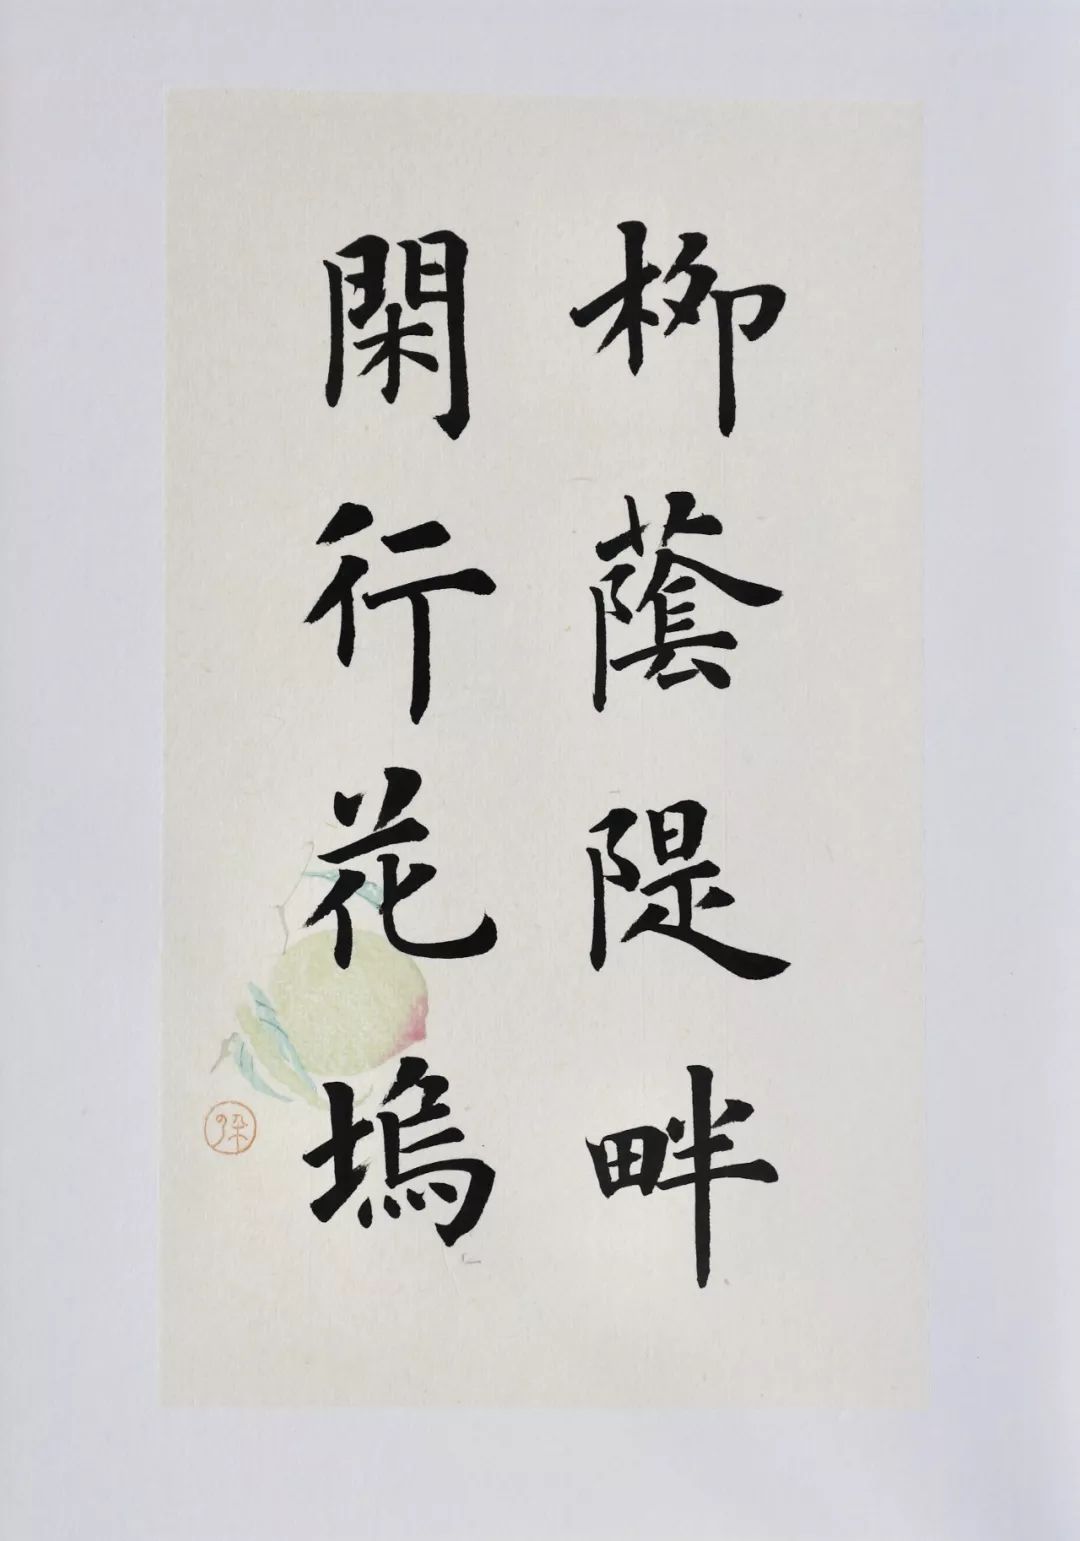 柳蔭隄畔
閑行花塢